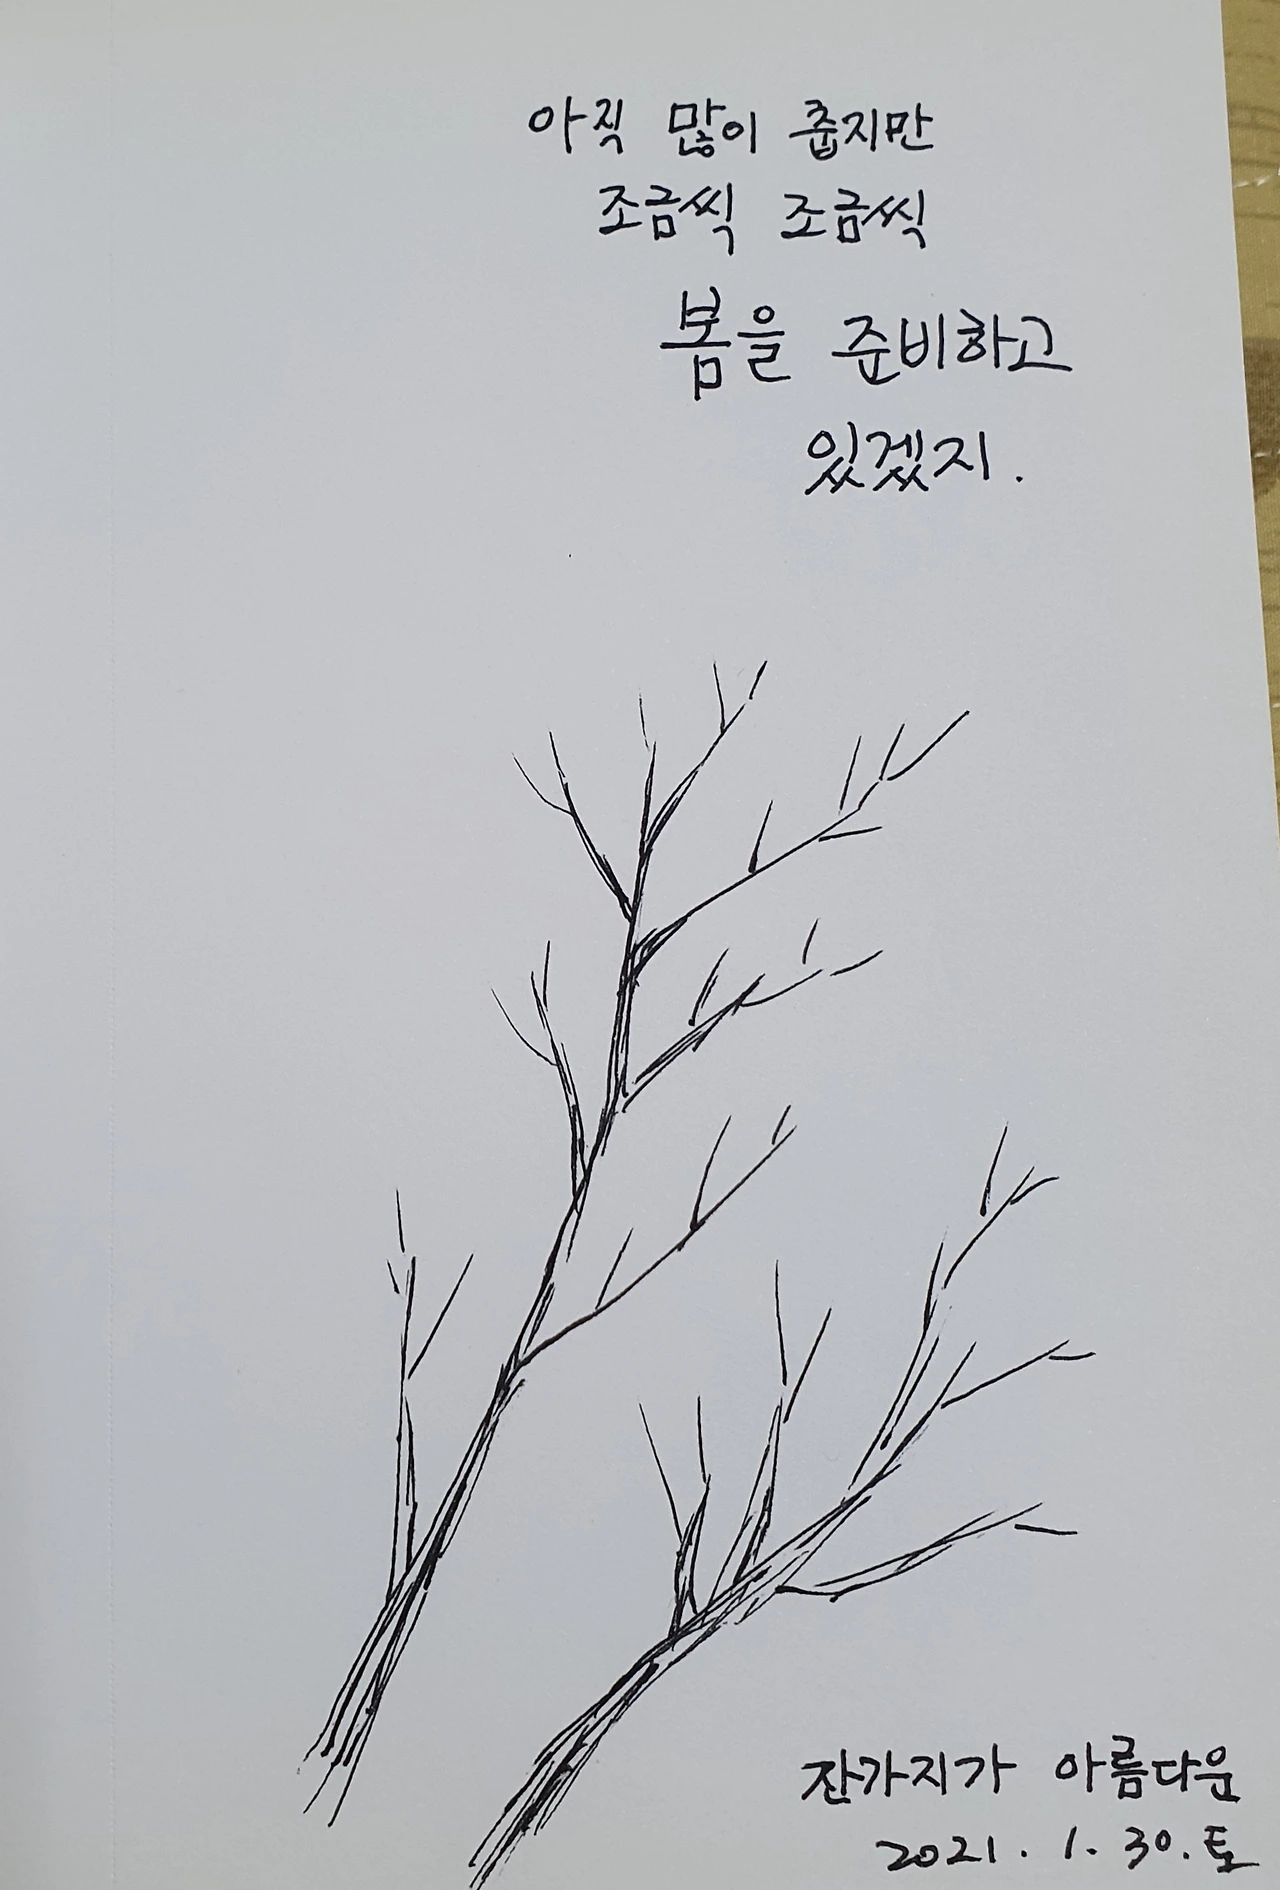 아직 많이 춥지만
조금씩 조금씩
봄을 준비하고
있겠지.
잔가지가 아름다운
2021. 1. 30. 토